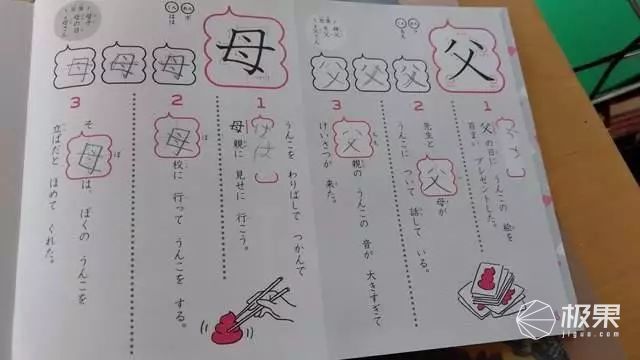 父
父 父 父
1
父の日に うんこの 絵を
百まい プレゼントした。
2
先生と 父母が
うんこに ついて 話して いる。
3
父親の うんこの 音が 大きすぎて
けいさつが 来た。
母
母 母 母
1
うんこを わりばしで つかんで
母親に 見せに 行こう。
はは
2
母校に 行って うんこを する。
ぼ
3
そ母は、ぼくの うんこを
立ぱだと ほめて くれた。
ぼ
极果
jiguo.com